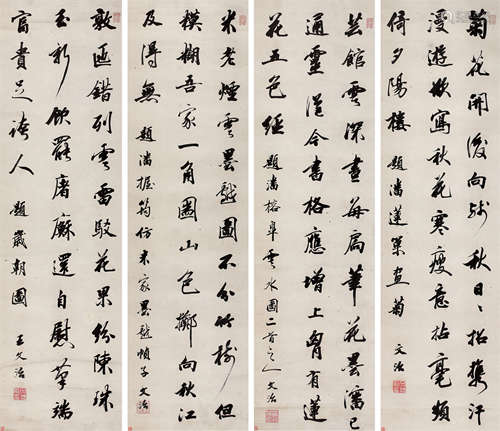 菊花開後向殘秋日日招攜汗
漫遊欲寫秋花寒瘦意拈毫頻
倚夕陽樓 題潘蓮巢畫菊 文治
芸館雲深晝每扃筆花曇瀋已
通靈從今書格應增上胷有蓮
花五色經 題潘榕皋雲水圖二首之一 文治
米老煙雲墨戲圖不分竹樹但
模糊吾家一角圖山色鄰向秋江
及得無 題潘握筠仿米家墨戲幀子 文治
敦匜錯列雲雷駮花果紛陳珠
玉新飲罷屠蘇還自慰筆端
富貴足誇人 題歲朝圖 王文治